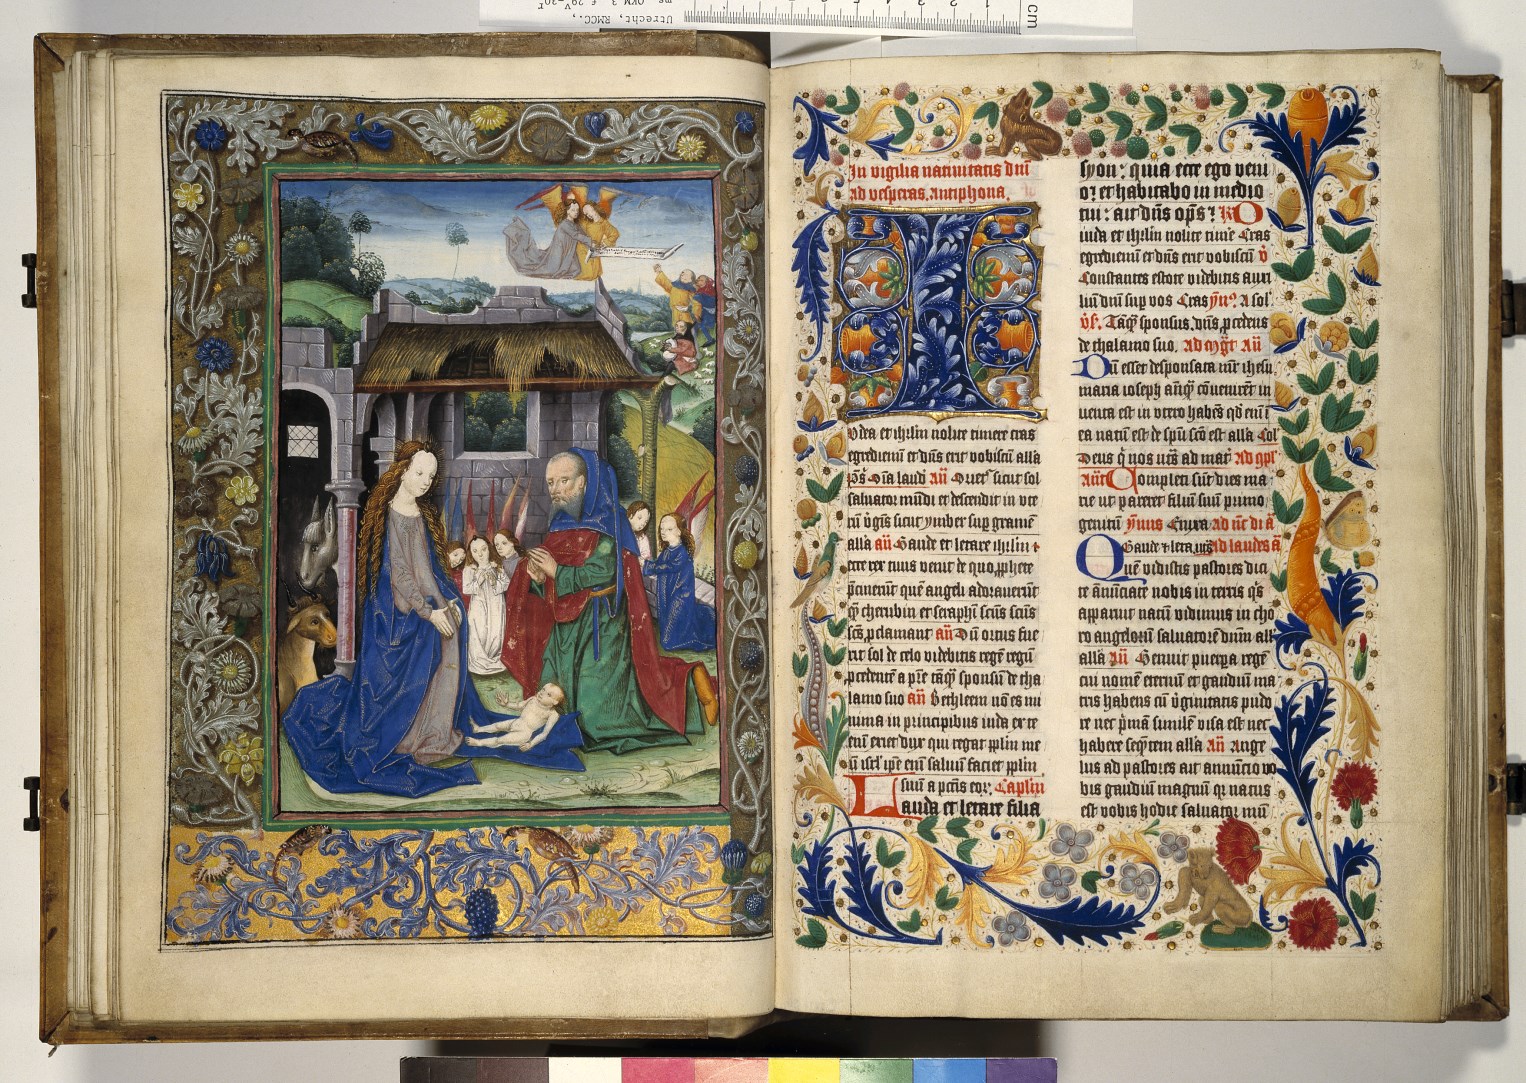 cm
Utrecht, RMCC.,
ms OKM 3 f 29v-30r
In vigilia nativitatis dnī
ad vesperas. antiphona.
I
vdea et ihrlm nolite timere cras
egrediemī et dn̄s erit vobiscū alla
p̄s Oīa laud an̄ Orietˀ sicut sol
saluator mūdi et descendit in vte
rū v̄gīs sicut ymber sup gramē
alla an̄ Gaude et letare ihrlm
ecce rex tuus venit de quo pphete
quē angeli adorauerūt
qͥ cherubin et seraphī scūs scūs
scūs pclamant an̄ Dū ortus fue
rit sol de celo videbitis regē regū
pcedentē a prē tāqͣ sponsū de tha
lamo suo an̄ Bethleem nō es mi
nima in principibus iuda ex te
enī exiet dux qui regat pplm me
ū isrl ipe enī saluū faciet pplm
suū a pctīs eoꝝ. Caplm
Lauda et letare filia
syon: quia ecce ego veni
oꝛ et habitabo in medio
tui: ait dn̄s op̄s: R̄ O
iuda et ihrlm nolite timē Cras
egrediemī et dn̄s erit vobiscū v̄
Constantes estote videbitis auxi
liū dnī sup vos Cras ymˀ. A sol
vs. Tāqͣ sponsus. dn̄s pcedens
de thalamo suo. Ad mgt An̄
Cū esset desponsata mr̄ ihesu
maria ioseph antqͣ cōuenirēt in
uenta est in vtero habēs qd enī ī
ea natū est de spū scō est alla Col
Deus qͥ nos
An̄t Completi sūt dies ma
rie vt pareret filiū suū primo
genitū
Gaude et leta. Ad laudes ā
Quē vidistis pastores dici
te ānūciate nobis in terris qͥs
apparuit natū vidimus in cho
ro angeloꝝ saluatorē dnm all
alla An̄ Genuit puerpa regē
cui nomē eternū et gaudiū ma
tris habens cū v̄ginitatis pudo
re nec p̄mā similē visa est nec
habere seqͣtem alla An̄ Ange
lus ad pastores ait annūcio vo
bis gaudiū magnū qꝛ natus
est vobis hodie saluator mū